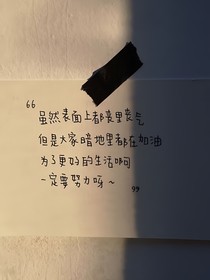 “
虽然表面上都丧里丧气
但是大家暗地里都在加油
为了更好的生活啊
一定要努力呀～
”